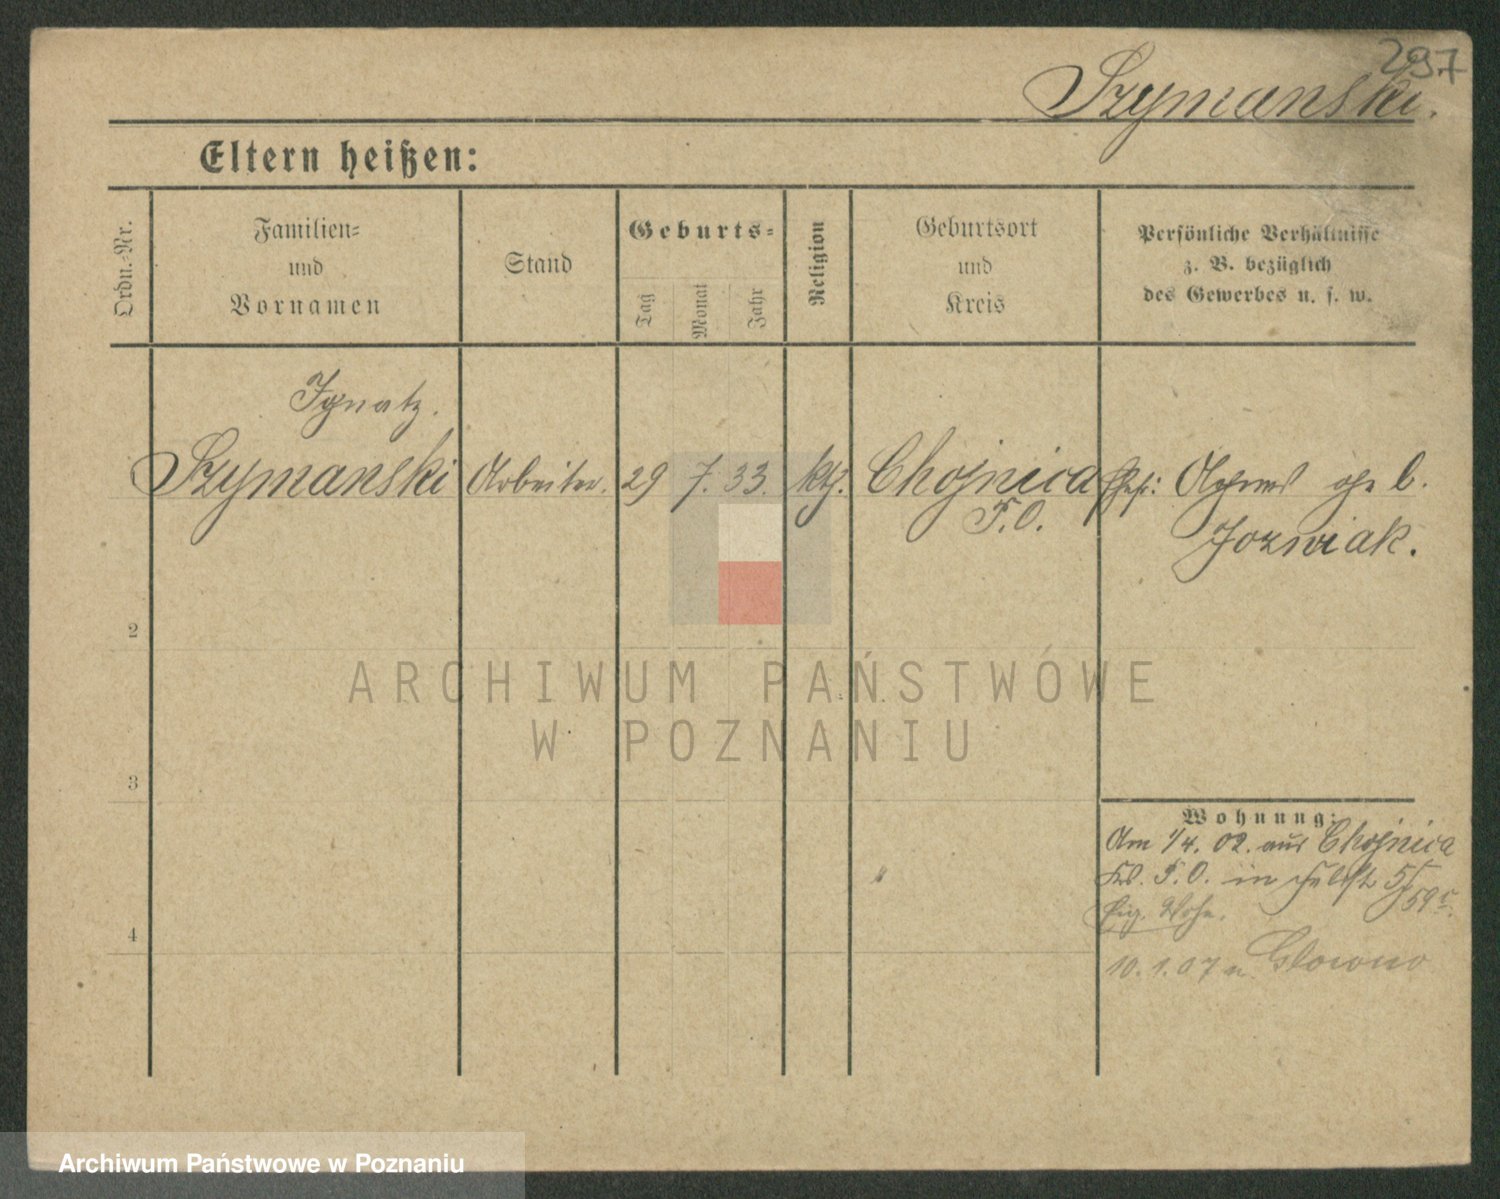 297
Szymanski.
Eltern heißen:
Ordn.-Nr.
Familien-
und
Vornamen
Stand
Geburts-
Tag
Monat
Jahr
Religion
Geburtsort
und
Kreis
Persönliche Verhältnisse
z. B. bezüglich
des Gewerbes u. s. w.
Ignatz.
Szymanski Arbeiter. 29 7. 33. kth. Chojnica Ehefr: Agnes geb.
P.O. Jozwiak.
2
ARCHIWUM PAŃSTWOWE
W POZNANIU
3
Wohnung:
Am 1/4. 02. aus Chojnica
P.O. in
Wohn.
4
10.1.07 n. Glowno
Archiwum Państwowe w Poznaniu